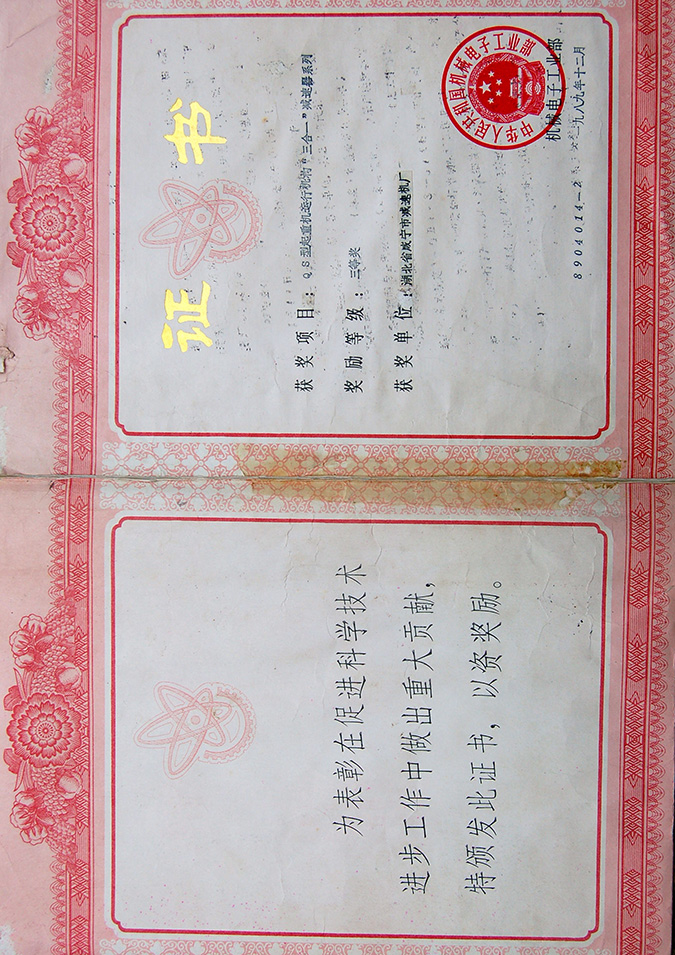 为表彰在促进科学技术
进步工作中做出重大贡献，
特颁发此证书，以资奖励。
证书
获奖项目：QS型起重机运行机构“三合一”减速器系列
奖励等级：三等奖
获奖单位：湖北省咸宁市减速机厂
中华人民共和国机械电子工业部
机械电子工业部
一九八九年十二月
8904014-2